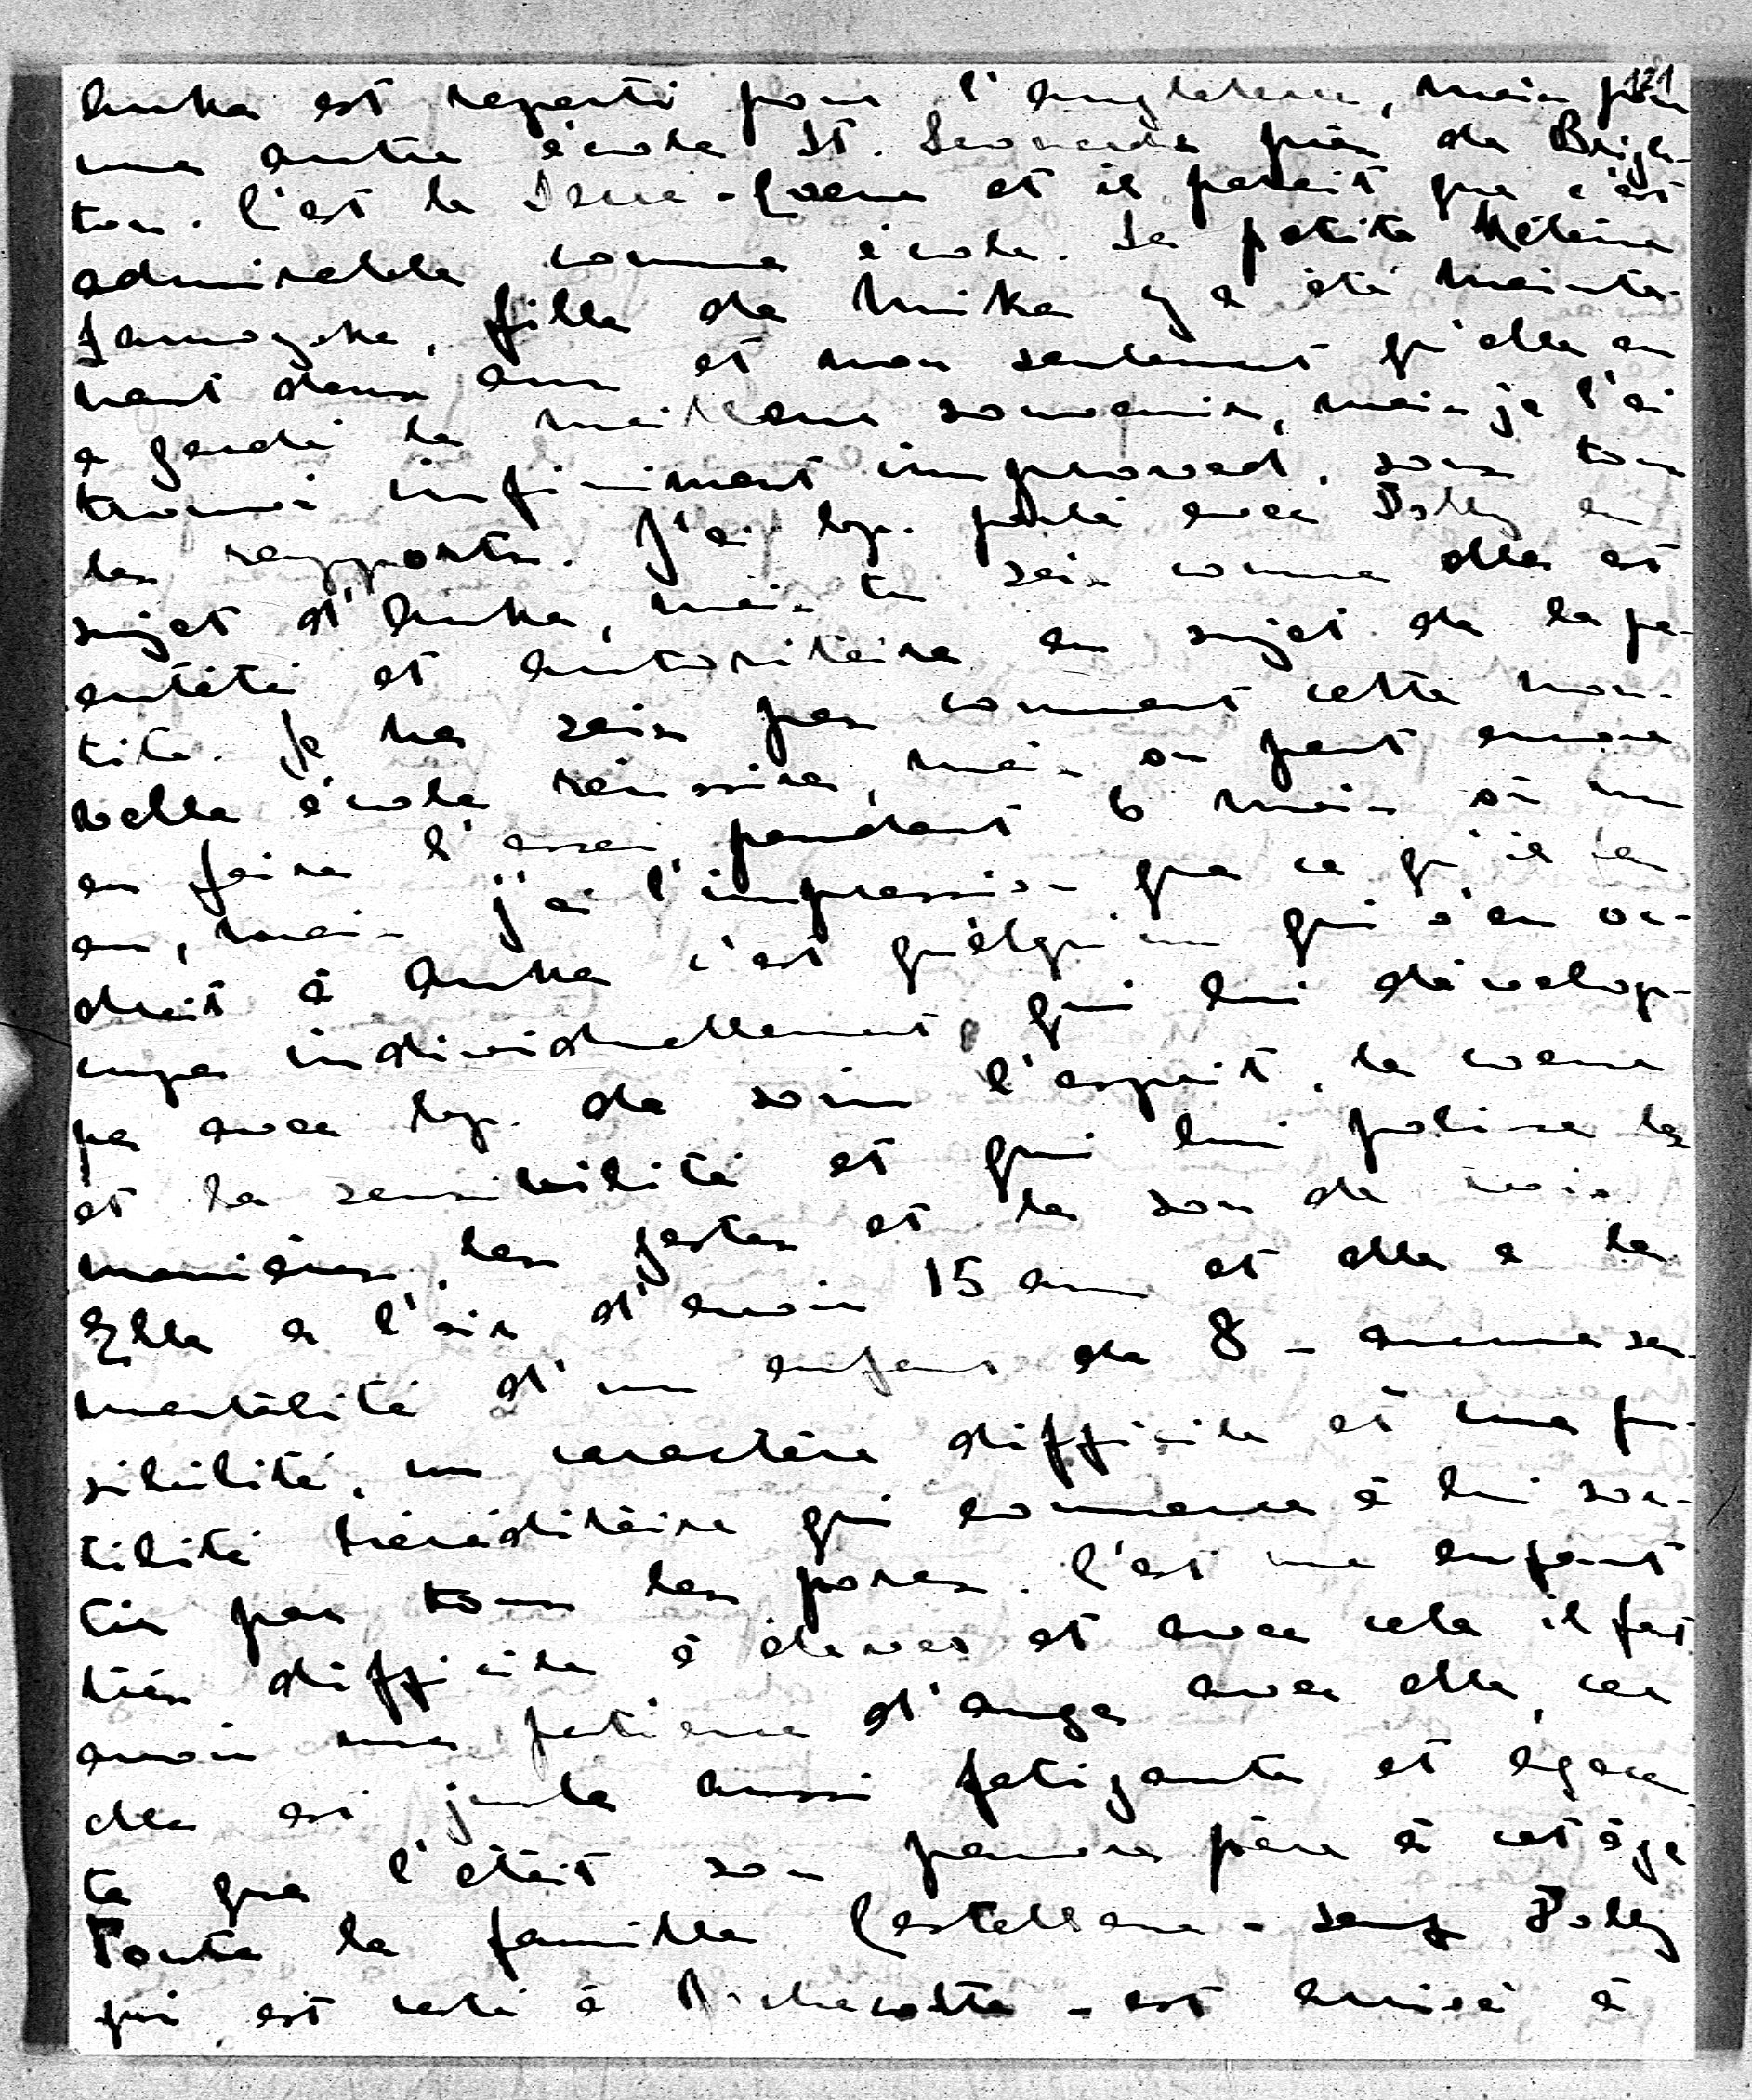 121
Anka est reparti pour l'Angleterre, mais pour
une autre école St. Leonards près de Brigh-
ton. C'est le Sacré-Coeur et il parait que c'est
admirable comme école. La petite Hélène
Jamoyska, fille de Mika y a été mainte-
nant deux ans et non seulement qu'elle en
a gardé le meilleur souvenir, mais je l'ai
trouvé infiniment improved, sous tous
les rapports. J'ai bp. parlé avec Dolly au
sujet d'Anka, mais tu sais comme elle est
entêté et autoritaire au sujet de la pe-
tite. Je ne sais pas comment cette nou-
velle école réussira, mais on peut encore
en faire l'essai pendant 6 mois où un
an, mais j'ai l'impression que ce qu'il fau
drait à Anka c'est quelqu'un qui s'en oc-
cupe individuellement, qui lui dévelop-
pe avec bp. de soin l'esprit, le coeur
et la sensibilité et qui lui polisse les
manières, les gestes et le son de voix.
Elle a l'air d'avoir 15 ans et elle a la
mentalité d'un enfant de 8 - aucune sen-
sibilité, un caractère difficile et une fu-
tilité héréditaire qui commence à lui sor-
tir par tous les pores. C'est une enfant
très difficile à élever et avec cela il faut
avoir une patience d'ange avec elle, car
elle est juste aussi fatigante et agaçan
te que l'était son pauvre père à cet âge
Toute la famille Castellane - sauf Dolly
qui est resté à Rochecotte - est arrivé à